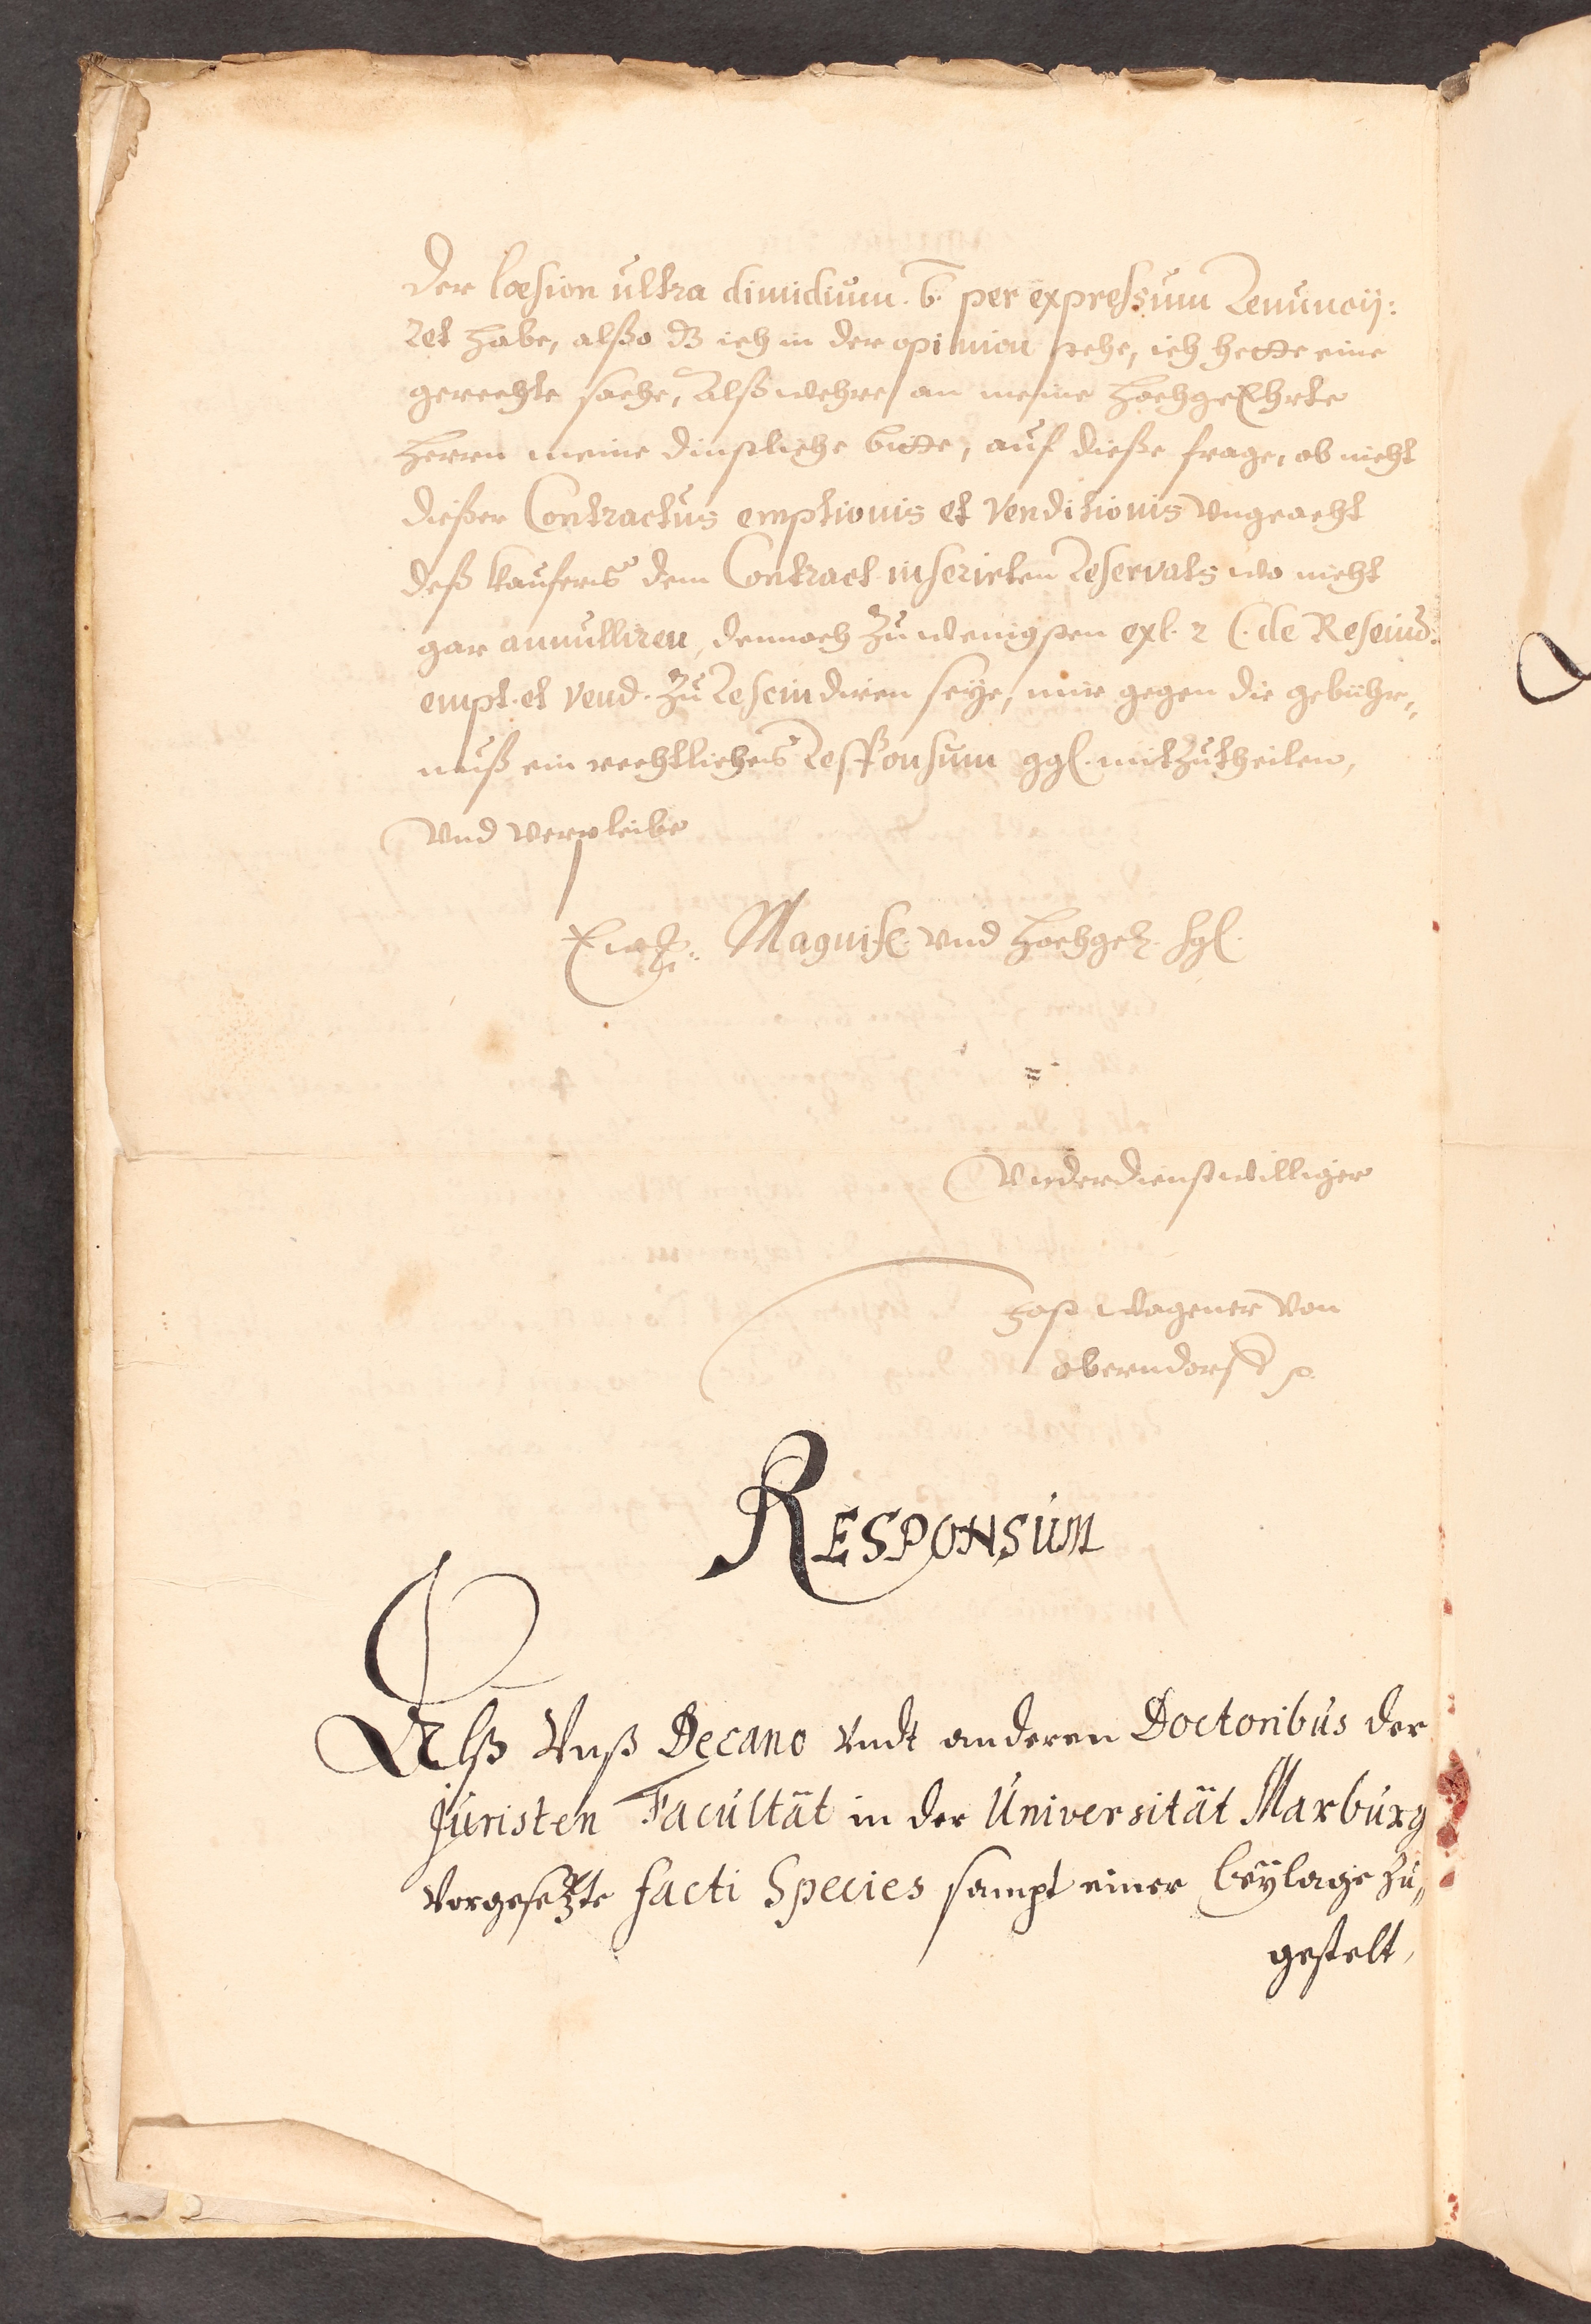 der lœsion ultra dimidium. b. per expressum Renuncij:
ret habe, alßo dz ich in der opinion stehe, ich hette eine
gerechte sache, Alß wehre an meine hochgeEhrte
herrn meine dinstliche bitte, auf dieße frage, ob nicht
dießer Contractus emptionis et venditionis Vngeacht
deß kaufers dem Contract inserirten Reservats wo nicht
gar annulliren, dennoch zu wenigsten ex l. 2 C. de Rescind:
empt. et vend. zu Rescindiren seye, mir gegen die gebühr„
nuß ein rechtliches Responsum ggl. mitzutheilen,
Vnd verpleibe
Ew. Magnif. vnd hochgel. hgl.
Vnderdienstwilliger
Jost Wagener von
oberndorff
RESPONSUM
Alß Vnß Decano Vndt anderen Doctoribus der
Juristen Facultät in der Universität Marburg
Vorgesetzte facti Species sampt einer beylage zu„
gestelt,